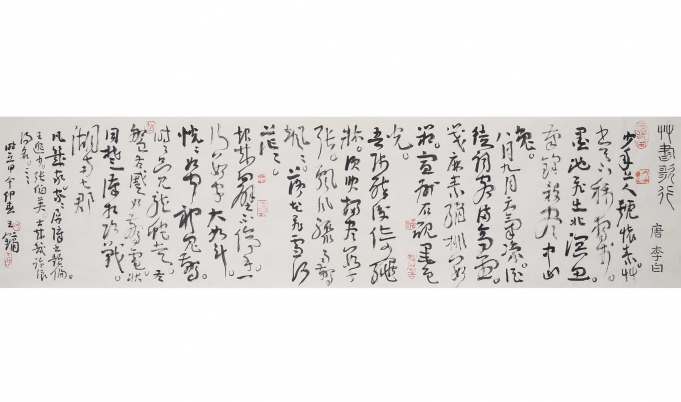 艸書歌行 唐 李白
少年上人號懷素艸
書天下稱獨步
墨池飛出北溟魚
筆鋒殺盡中山
兔
八月九月天氣涼酒
徒詞客滿高堂
箋麻素絹排數
箱宣州石硯墨色
光
吾師醉後倚繩
床須臾掃盡數千
張飄風驟雨驚
颯々落花飛雪何
茫々
起來向壁不停手一
行數字大如斗
怳々如聞神鬼驚
時時只見龍蛇走左
盤右蹙如驚電狀
同楚漢相攻戰
湖南七郡
凡幾家家々屏障書題徧
王逸少張伯英古來幾許浪
得名
王鏞